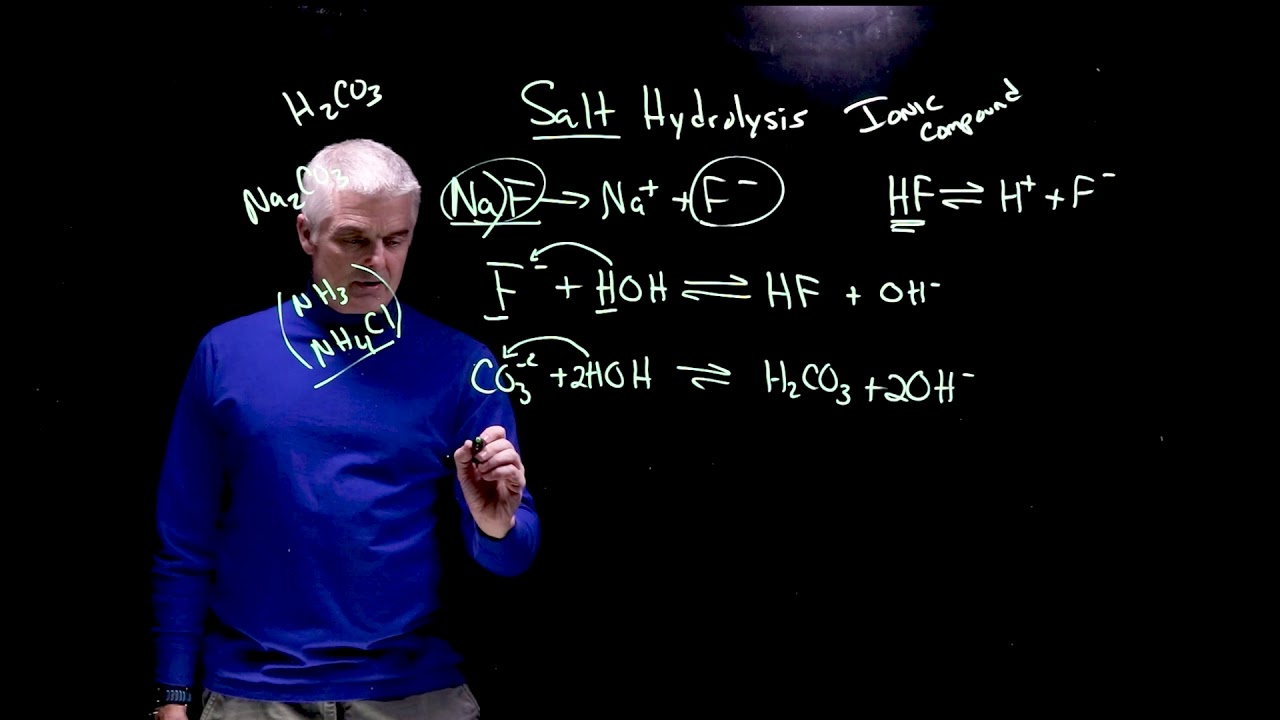 H₂CO₃
Salt Hydrolysis Ionic compound
Na₂CO₃
NaF → Na⁺ + F⁻
HF ⇌ H⁺ + F⁻
F⁻ + HOH ⇌ HF + OH⁻
NH₃
NH₄Cl
CO₃⁻² + 2HOH ⇌ H₂CO₃ + 2OH⁻